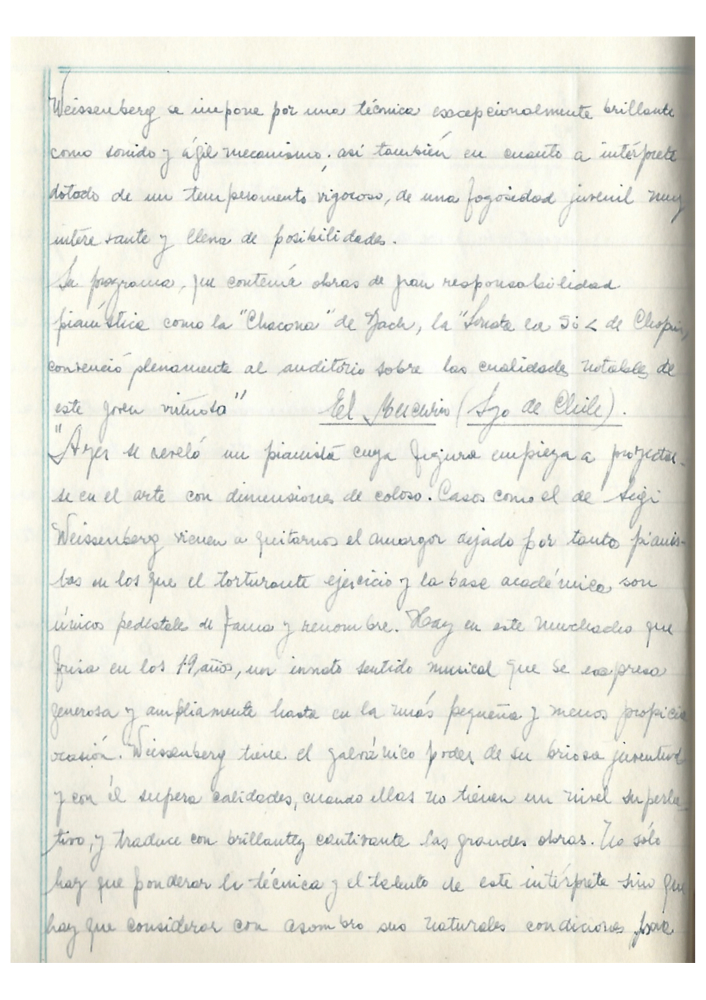 Weissenberg se impone por una técnica excepcionalmente brillante
como sonido y ágil mecanismo. así también en cuanto a intérprete
dotado de un temperamento vigoroso, de una fogosidad juvenil muy
interesante y llena de posibilidades.
Su programa, que contenía obras de gran responsabilidad
pianística como la "Chacona" de Bach, la "Sonata en Si de Chopin,
convenció plenamente al auditorio sobre las cualidades notables de
este joven virtuoso" El Mercurio (Sgo de Chile).
"Ayer se reveló un pianista cuya figura empieza a proyectar-
se en el arte con dimensiones de coloso. Casos como el de Sigi
Weissenberg vienen a quitarnos el amargor dejado por tanto pianis-
tas en los que el torturante ejercicio y la base académica son
únicos pedestales de fama y renombre. Hay en este muchacho que
frisa en los 19 años, un innato sentido musical que se expresa
generosa y ampliamente hasta en la más pequeña y menos propicia
ocasión. Weissenberg tiene el galvánico poder de su briosa juventud
y con él supera calidades, cuando ellas no tienen un nivel superla-
tivo, y traduce con brillantez cautivante las grandes obras. No sólo
hay que ponderar la técnica y el talento de este intérprete sino que
hay que considerar con asombro sus naturales condiciones para